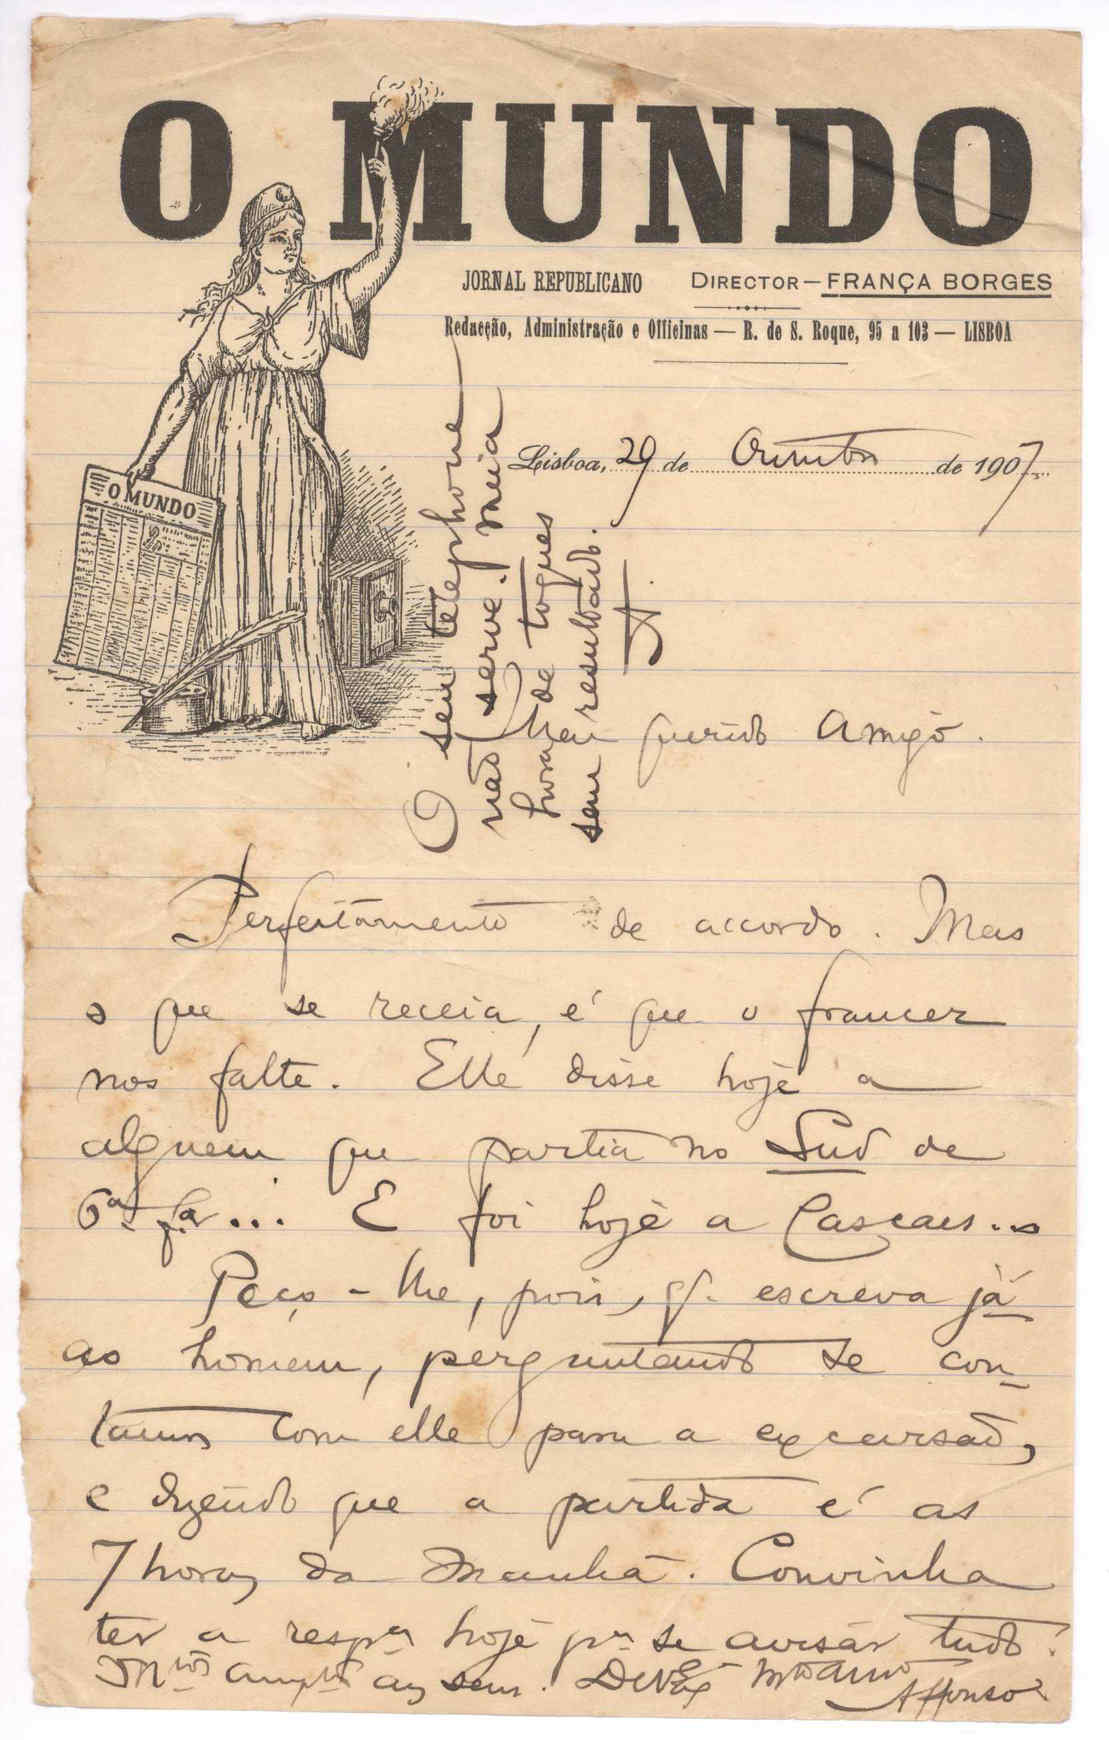 O MUNDO
JORNAL REPUBLICANO DIRECTOR — FRANÇA BORGES
Redacção, Administração e Officinas — R. de S. Roque, 95 a 103 — LISBOA
O MUNDO
Lisboa, 29 de Outubro de 1907
O seu telephone
não serve. Meia
hora de toques
sem resultado.
A.
Meu querido Amigo.
Perfeitamente de accordo. Mas
o que se receia, é que o francez
nos falte. Elle disse hoje a
alguem que partia no Sud de
6ª fª... E foi hoje a Cascaes...
Peço-lhe, pois, q. escreva já
ao homem, perguntando se con-
tamos com elle para a excursão,
e dizendo que a partida é as
7 horas da manhã. Convinha
ter a respª hoje pª se avisár tudo!
M.tos cumptos aos seus. De V. Exª Mto Amº
Affonso